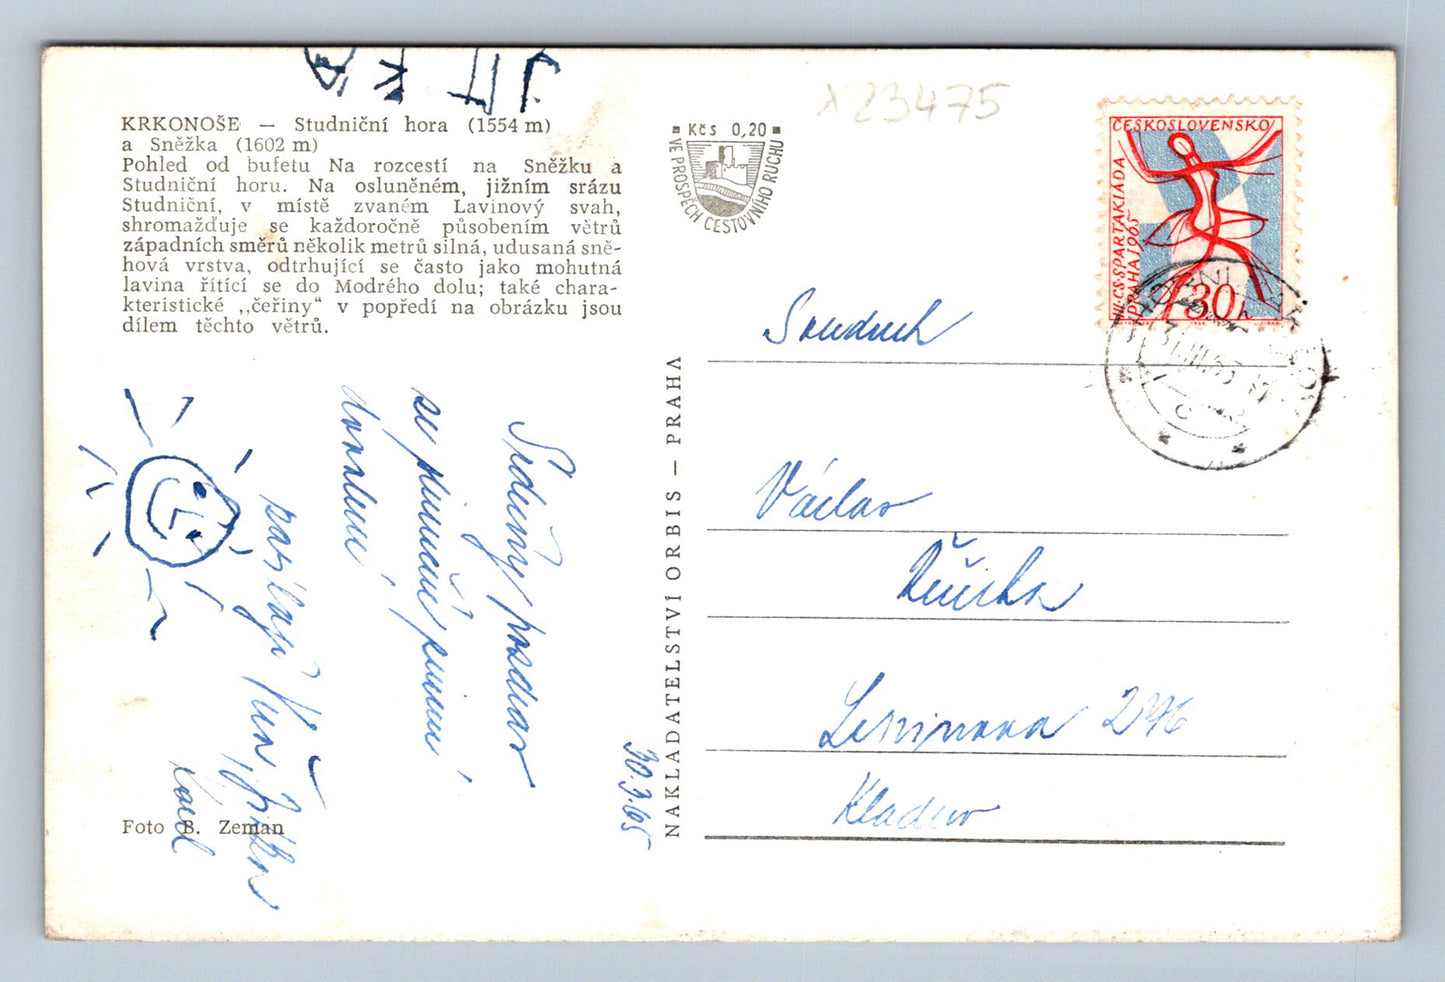 JITKA
KRKONOŠE — Studniční hora (1554 m)
a Sněžka (1602 m)
Pohled od bufetu Na rozcestí na Sněžku a
Studniční horu. Na osluněném, jižním srázu
Studniční, v místě zvaném Lavinový svah,
shromažďuje se každoročně působením větrů
západních směrů několik metrů silná, udusaná sně-
hová vrstva, odtrhující se často jako mohutná
lavina řítící se do Modrého dolu; také chara-
kteristické „čeřiny“ v popředí na obrázku jsou
dílem těchto větrů.
Srdečný pozdrav
se sluneční zimní
zasílají
30.3.65
Foto B. Zeman
NAKLADATELSTVÍ ORBIS — PRAHA
Kčs 0,20
VE PROSPĚCH CESTOVNÍHO RUCHU
23475
ČESKOSLOVENSKO
III. CS. SPARTAKIÁDA
PRAHA 1965
30 h
Soudruh
Václav
Růžička
Leninova 296
Kladno